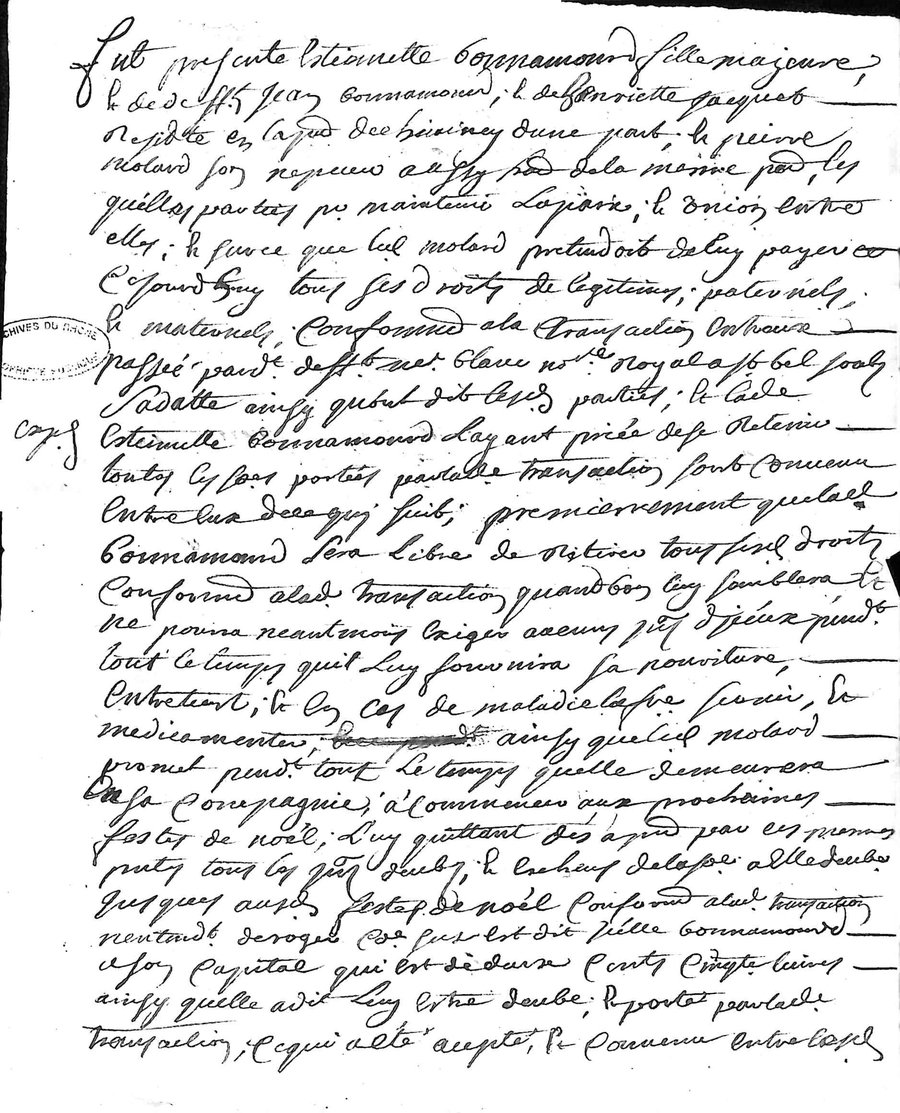 fut presente Estiennette bonnamourd fille majeure,
& de deffts Jean bonnamourd, & de henriette Jacquet
Residte en la pnd. de cheviney dune part, & pierre
molard son nepveu aussy hnd de la mesme pnd, les
quelles parties pr maintenir la paix, & union entre
elles, & sur ce que led molard pretendoit de luy payer ce
ce Jourdhuy tous ses droits de legitimes, paternels,
& maternels, conformnd a la transaction entreux
passée pardt. defft me. blanc nore. Royal a st bel soubs
Sa datte ainsy quont dit lesd parties, & lade
ARCHIVES DU RHÔNE
Estiennette bonnamourd Layant priée de se Retenir
toutes les soes portées par lade transaction sont convenu
Entre eux de ce qui suit, premierrement que lad
bonnamourd Sera Libre de Retirer tous sesd droits
conformnd a lad. transaction quand bon luy semblera, &
ne pourra neantmoins Exiger aucuns d'jceux pendt.
tout le temps quil Luy fournira sa nouriture,
Entretient, & En cas de maladie la fre servir, &
medicamenter, ainsy que led molard
promet pendt. tout Le temps quelle demeurera
En sa compagnie, à commencer aux prochaines
festes de noël, Luy quittant dés apnd par ces pnnes
putes tous les deubs, & Escheus de la soe. a Elle deube
Jusques auxd festes de noël conformnd a lad. transaction
nentendt. deroger Ce sus est dit Jcelle bonnamourd
a son capital qui est de deux cents cinqte livres
ainsy quelle a dit Luy estre deube, & portée par lade
transaction, ce qui a Eté accepté, & convenu entre lesd